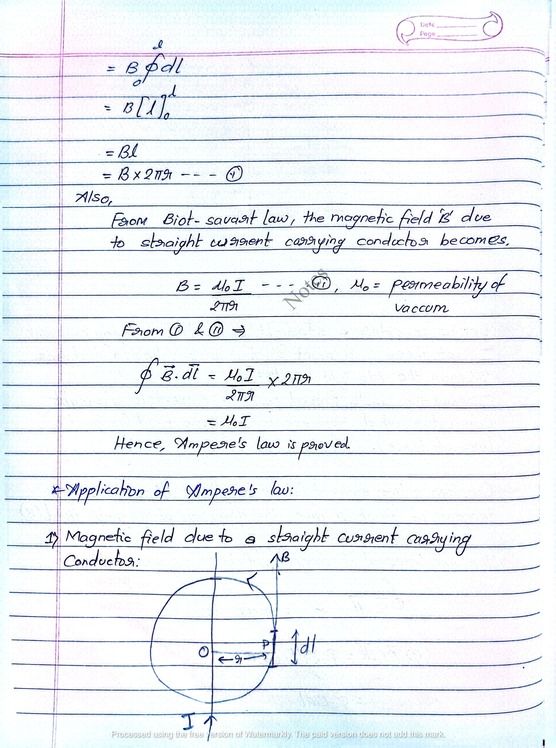 Date
Page
= B ∮₀ˡ dl
= B[l]₀ˡ
= Bl
= B × 2πr --- ①
Also,
From Biot-savart law, the magnetic field 'B' due
to straight current carrying conductor becomes.
B = μ₀I / 2πr --- ⑪, μ₀ = permeability of
vaccum
Notes
From ① & ⑪ ⇒
∮ B⃗. dl⃗ = μ₀I / 2πr × 2πr
= μ₀I
Hence, Ampere's law is proved.
* Application of Ampere's law:
1) Magnetic field due to a straight current carrying
Conductor:
B
O
r
P
dl
I
Processed using the free version of Watermarkly. The paid version does not add this mark.